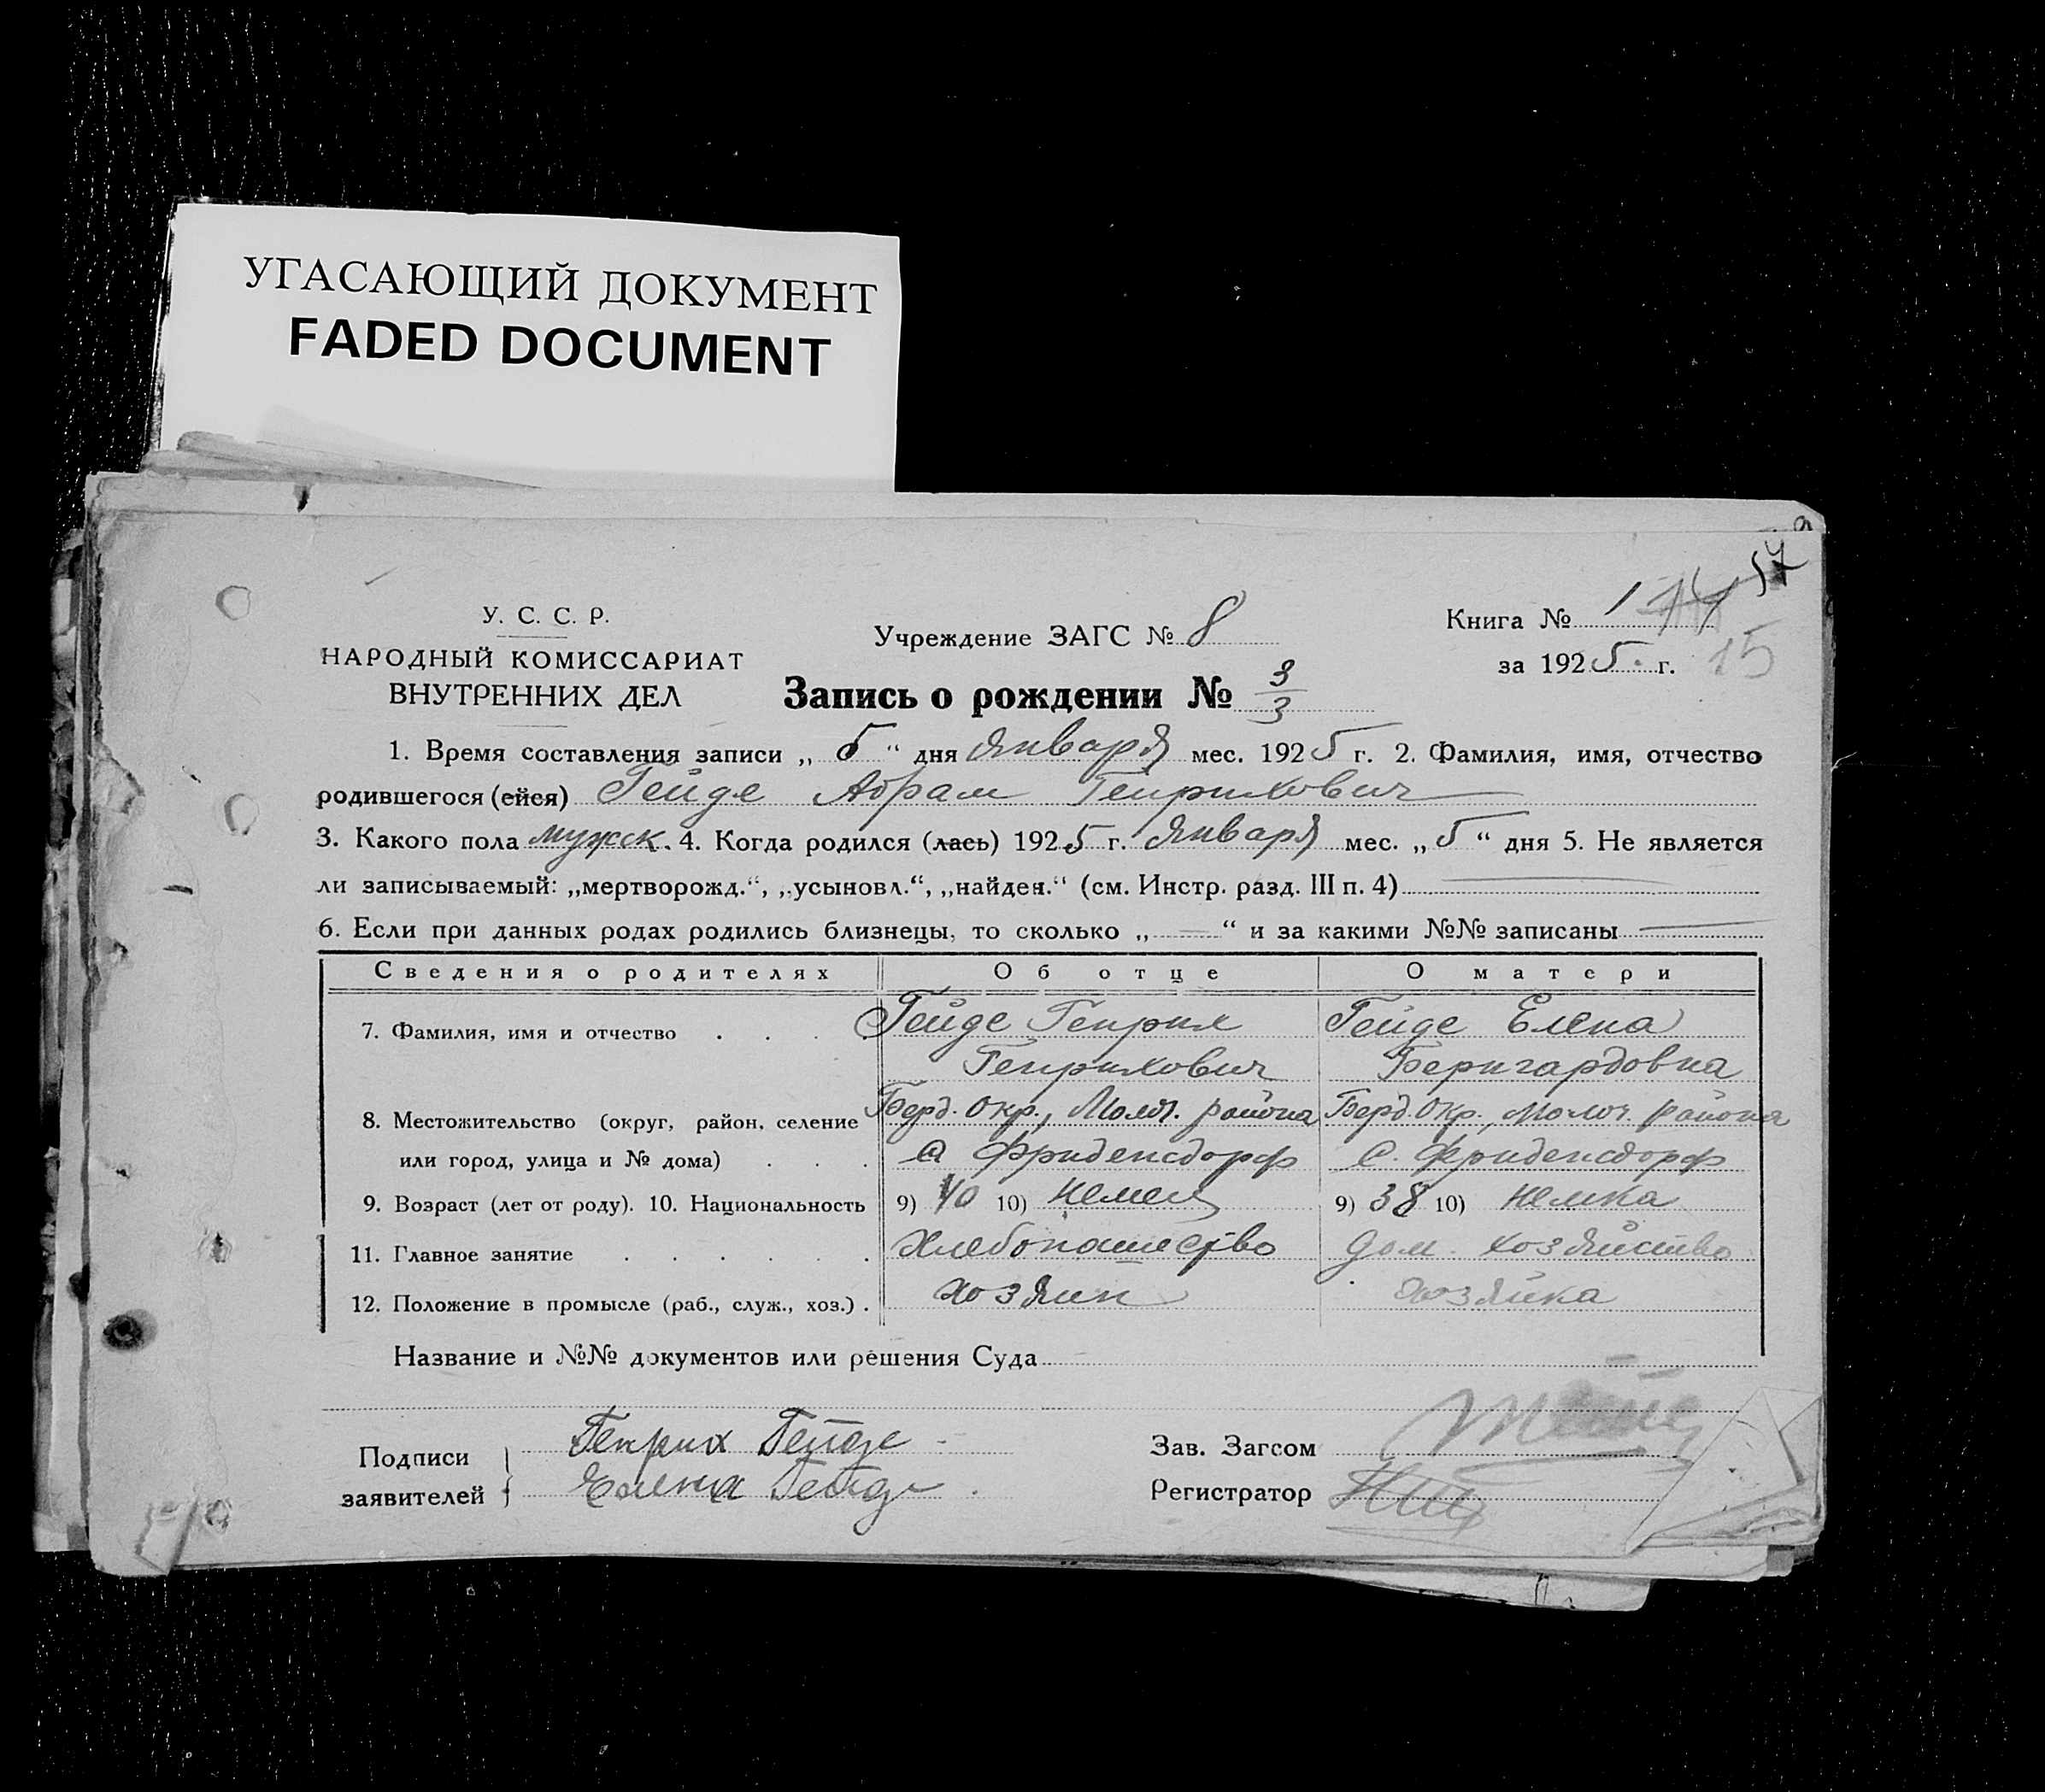 УГАСАЮЩИЙ ДОКУМЕНТ
FADED DOCUMENT
57
У. С. С. Р.
НАРОДНЫЙ КОМИССАРИАТ
ВНУТРЕННИХ ДЕЛ
Учреждение ЗАГС № 8
Книга № 1
за 1925 г. 15
Запись о рождении № 3/3
1. Время составления записи „ 5 “ дня января мес. 1925 г. 2. Фамилия, имя, отчество
родившегося (ейся) Гейде Абрам Генрихович
3. Какого пола мужск. 4. Когда родился (лась) 1925 г. января мес. „ 5 “ дня 5. Не является
ли записываемый: „мертворожд.“, „усыновл.“, „найден.“ (см. Инстр. разд. III п. 4)
6. Если при данных родах родились близнецы, то сколько „ — “ и за какими №№ записаны —
Сведения о родителях Об отце О матери
7. Фамилия, имя и отчество Гейде Генрих Гейде Елена
Генрихович Бернгардовна
8. Местожительство (округ, район, селение Берд. окр., Молоч. района Берд. окр., Молоч. района
или город, улица и № дома) с Фриденсдорф с. Фриденсдорф
9. Возраст (лет от роду). 10. Национальность 9) 40 10) немец 9) 38 10) немка
11. Главное занятие Хлебопашество дом. хозяйство
12. Положение в промысле (раб., служ., хоз.) хозяин хозяйка
Название и №№ документов или решения Суда
Подписи
заявителей
Генрих Гейде
Елена Гейде
Зав. Загсом
Регистратор